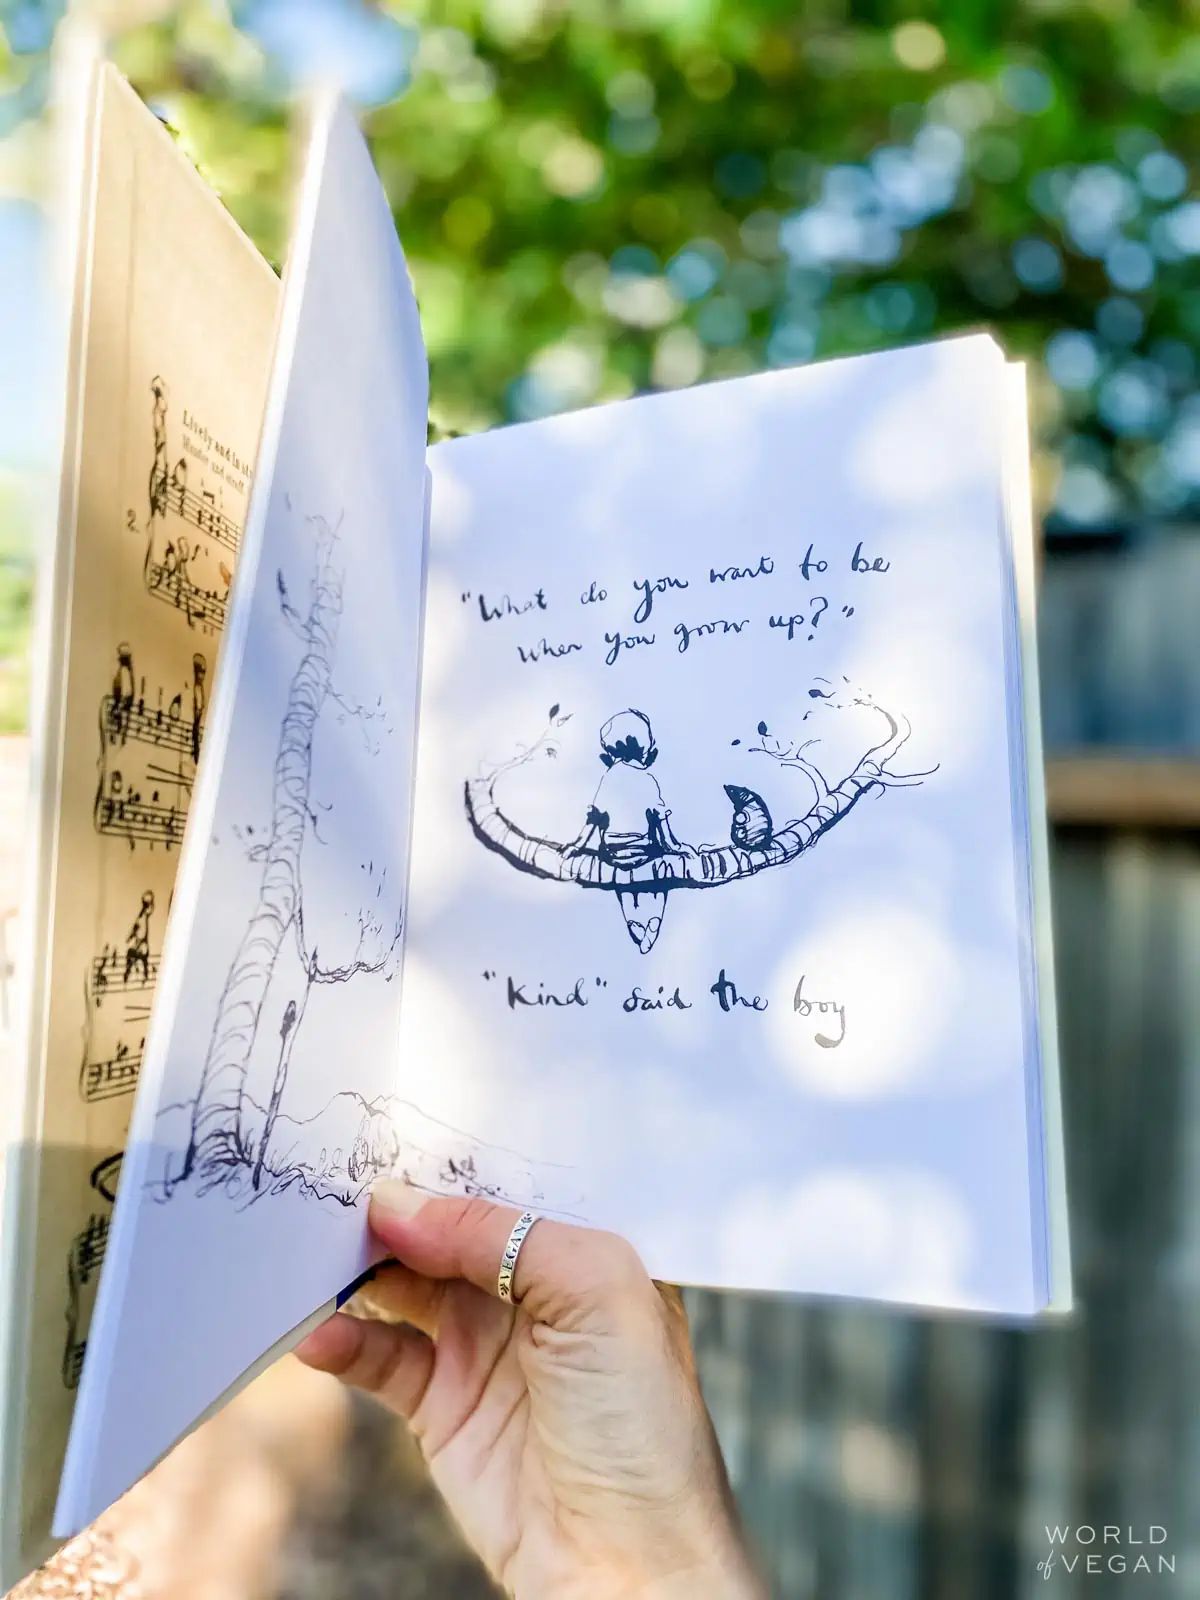 Lively and in
2.
"What do you want to be
when you grow up?"
"Kind" said the boy
VEGAN
WORLD
of VEGAN